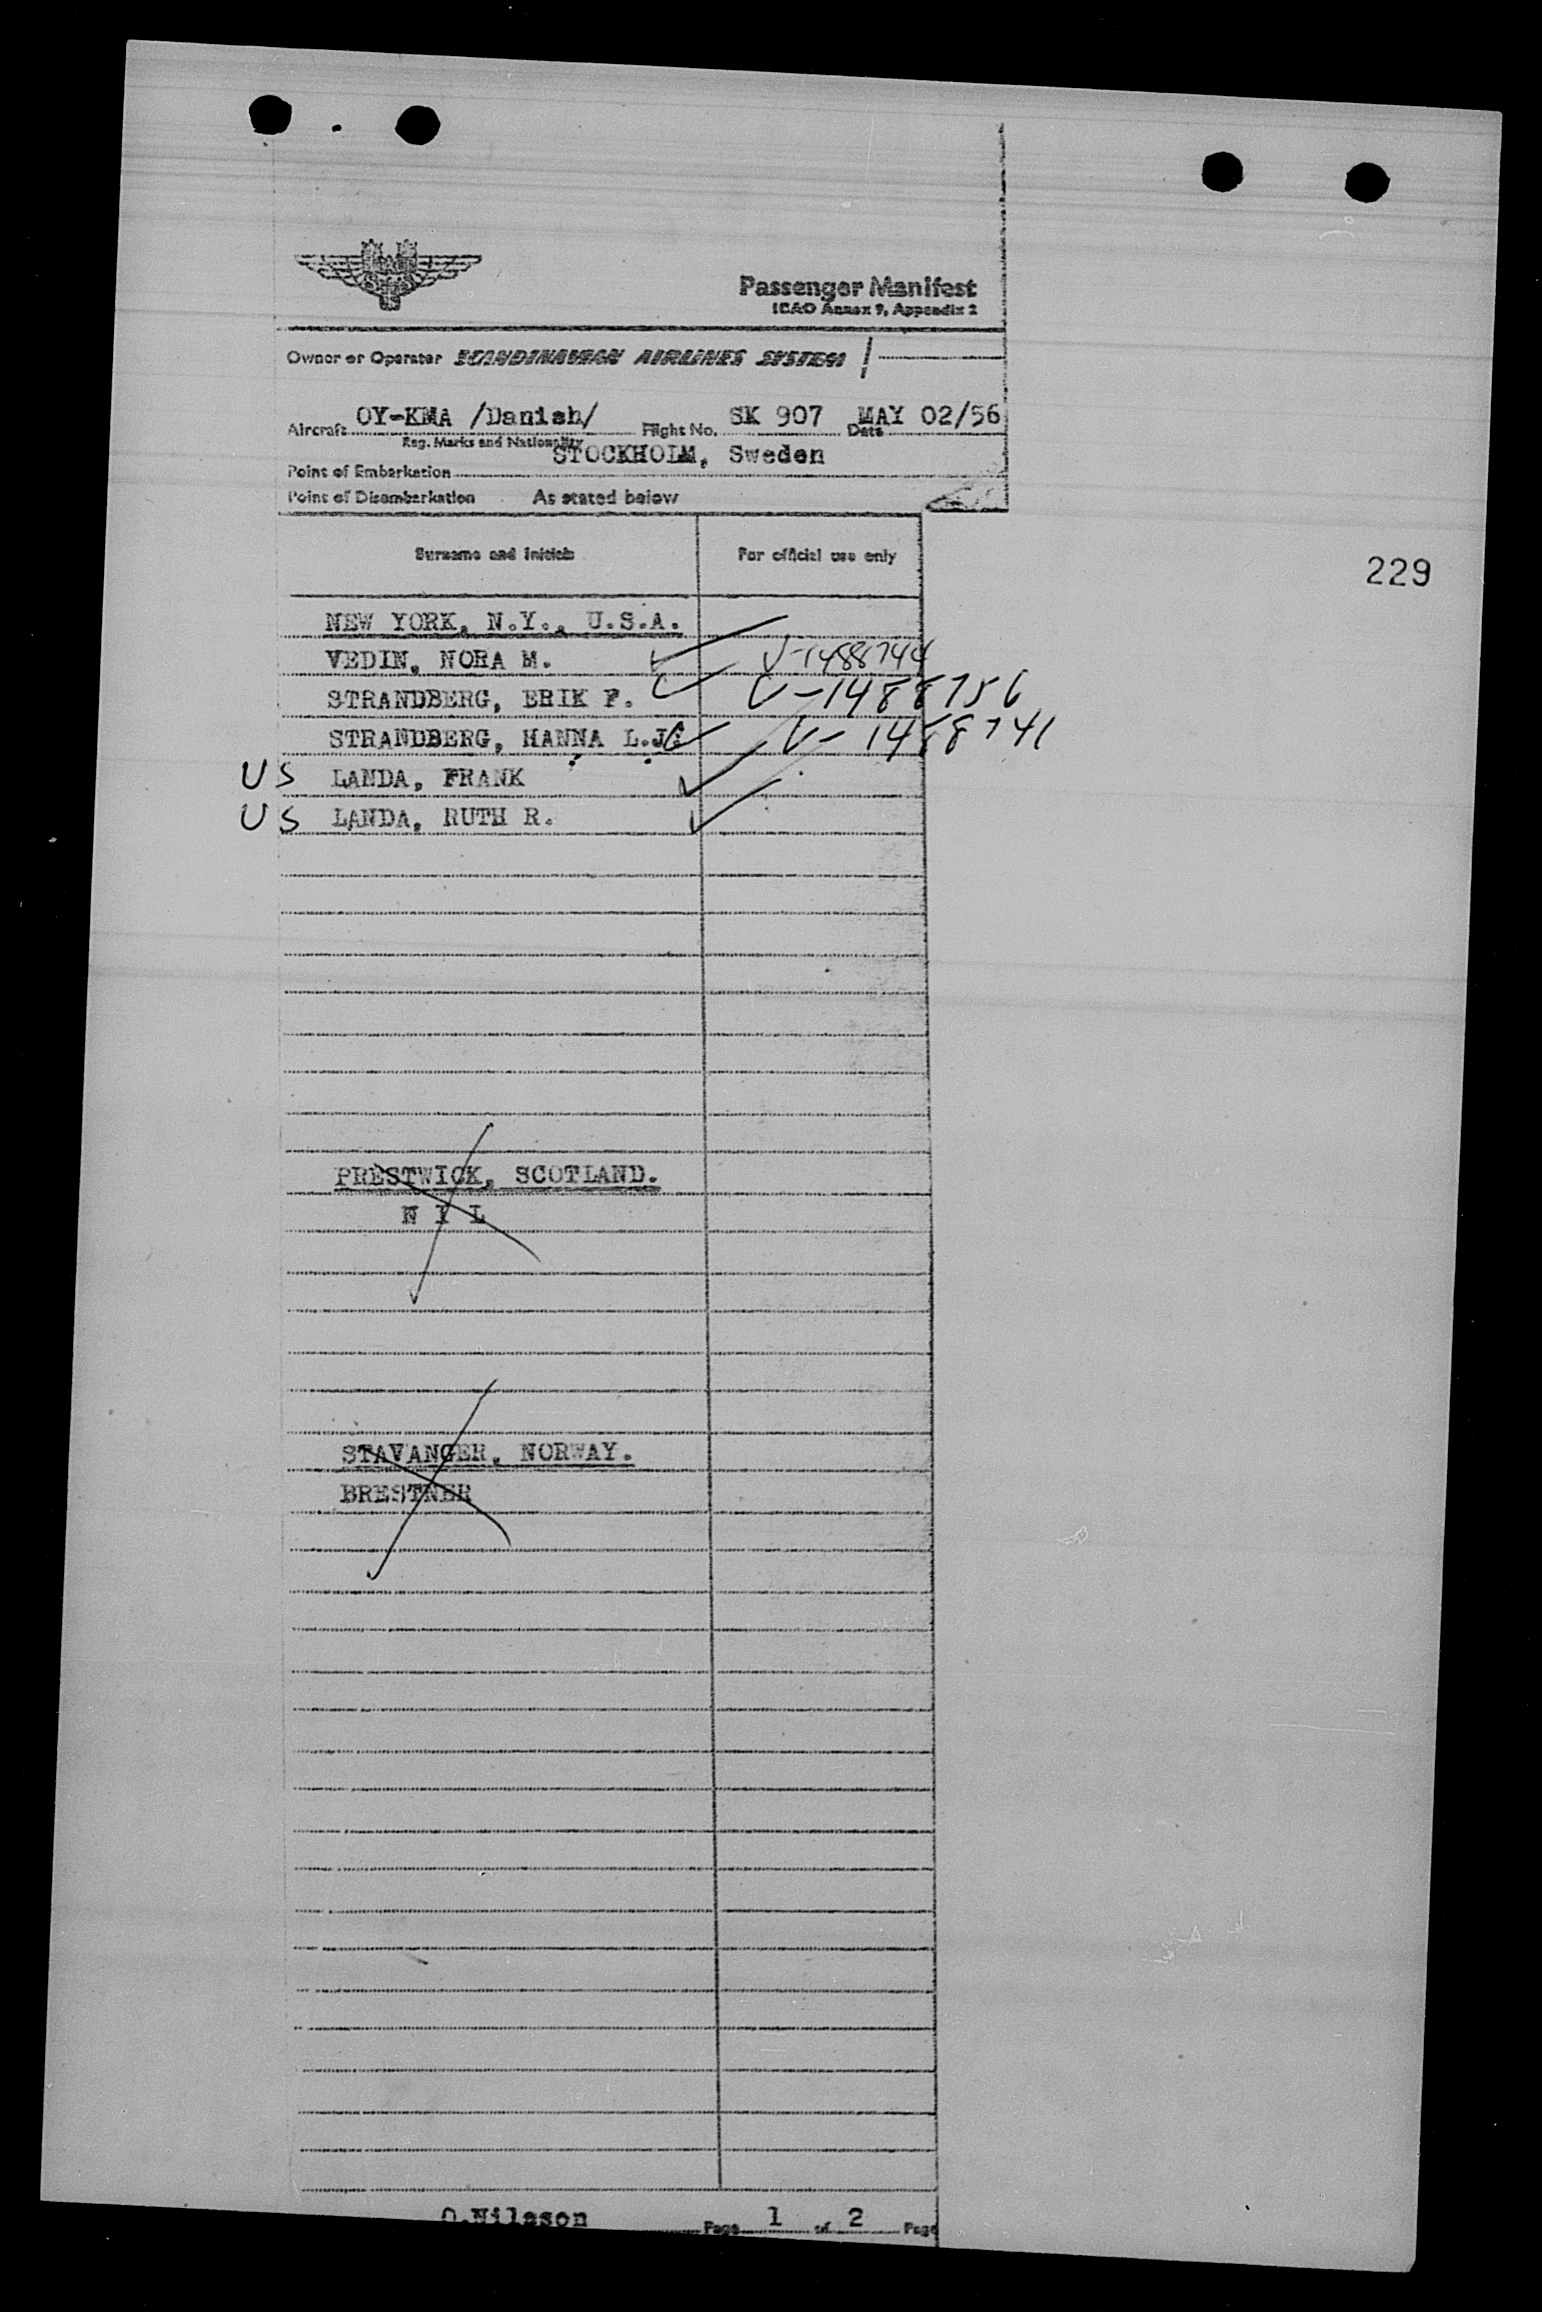 Passenger Manifest
ICAO Annex 9, Appendix 2
Owner or Operator SCANDINAVIAN AIRLINES SYSTEM
Aircraft OY-KMA /Danish/ Flight No. SK 907 Date MAY 02/56
Reg. Marks and Nationality
Point of Embarkation STOCKHOLM, Sweden
Point of Disembarkation As stated below
Surname and initials For official use only
229
NEW YORK, N.Y., U.S.A.
VEDIN, NORA M. V-1488744
STRANDBERG, ERIK F. V-1488756
STRANDBERG, HANNA L.J. V-1488741
US LANDA, FRANK
US LANDA, RUTH R.
PRESTWICK, SCOTLAND.
N I L
STAVANGER, NORWAY.
BRESTNER
O.Nilsson Page 1 of 2 Page